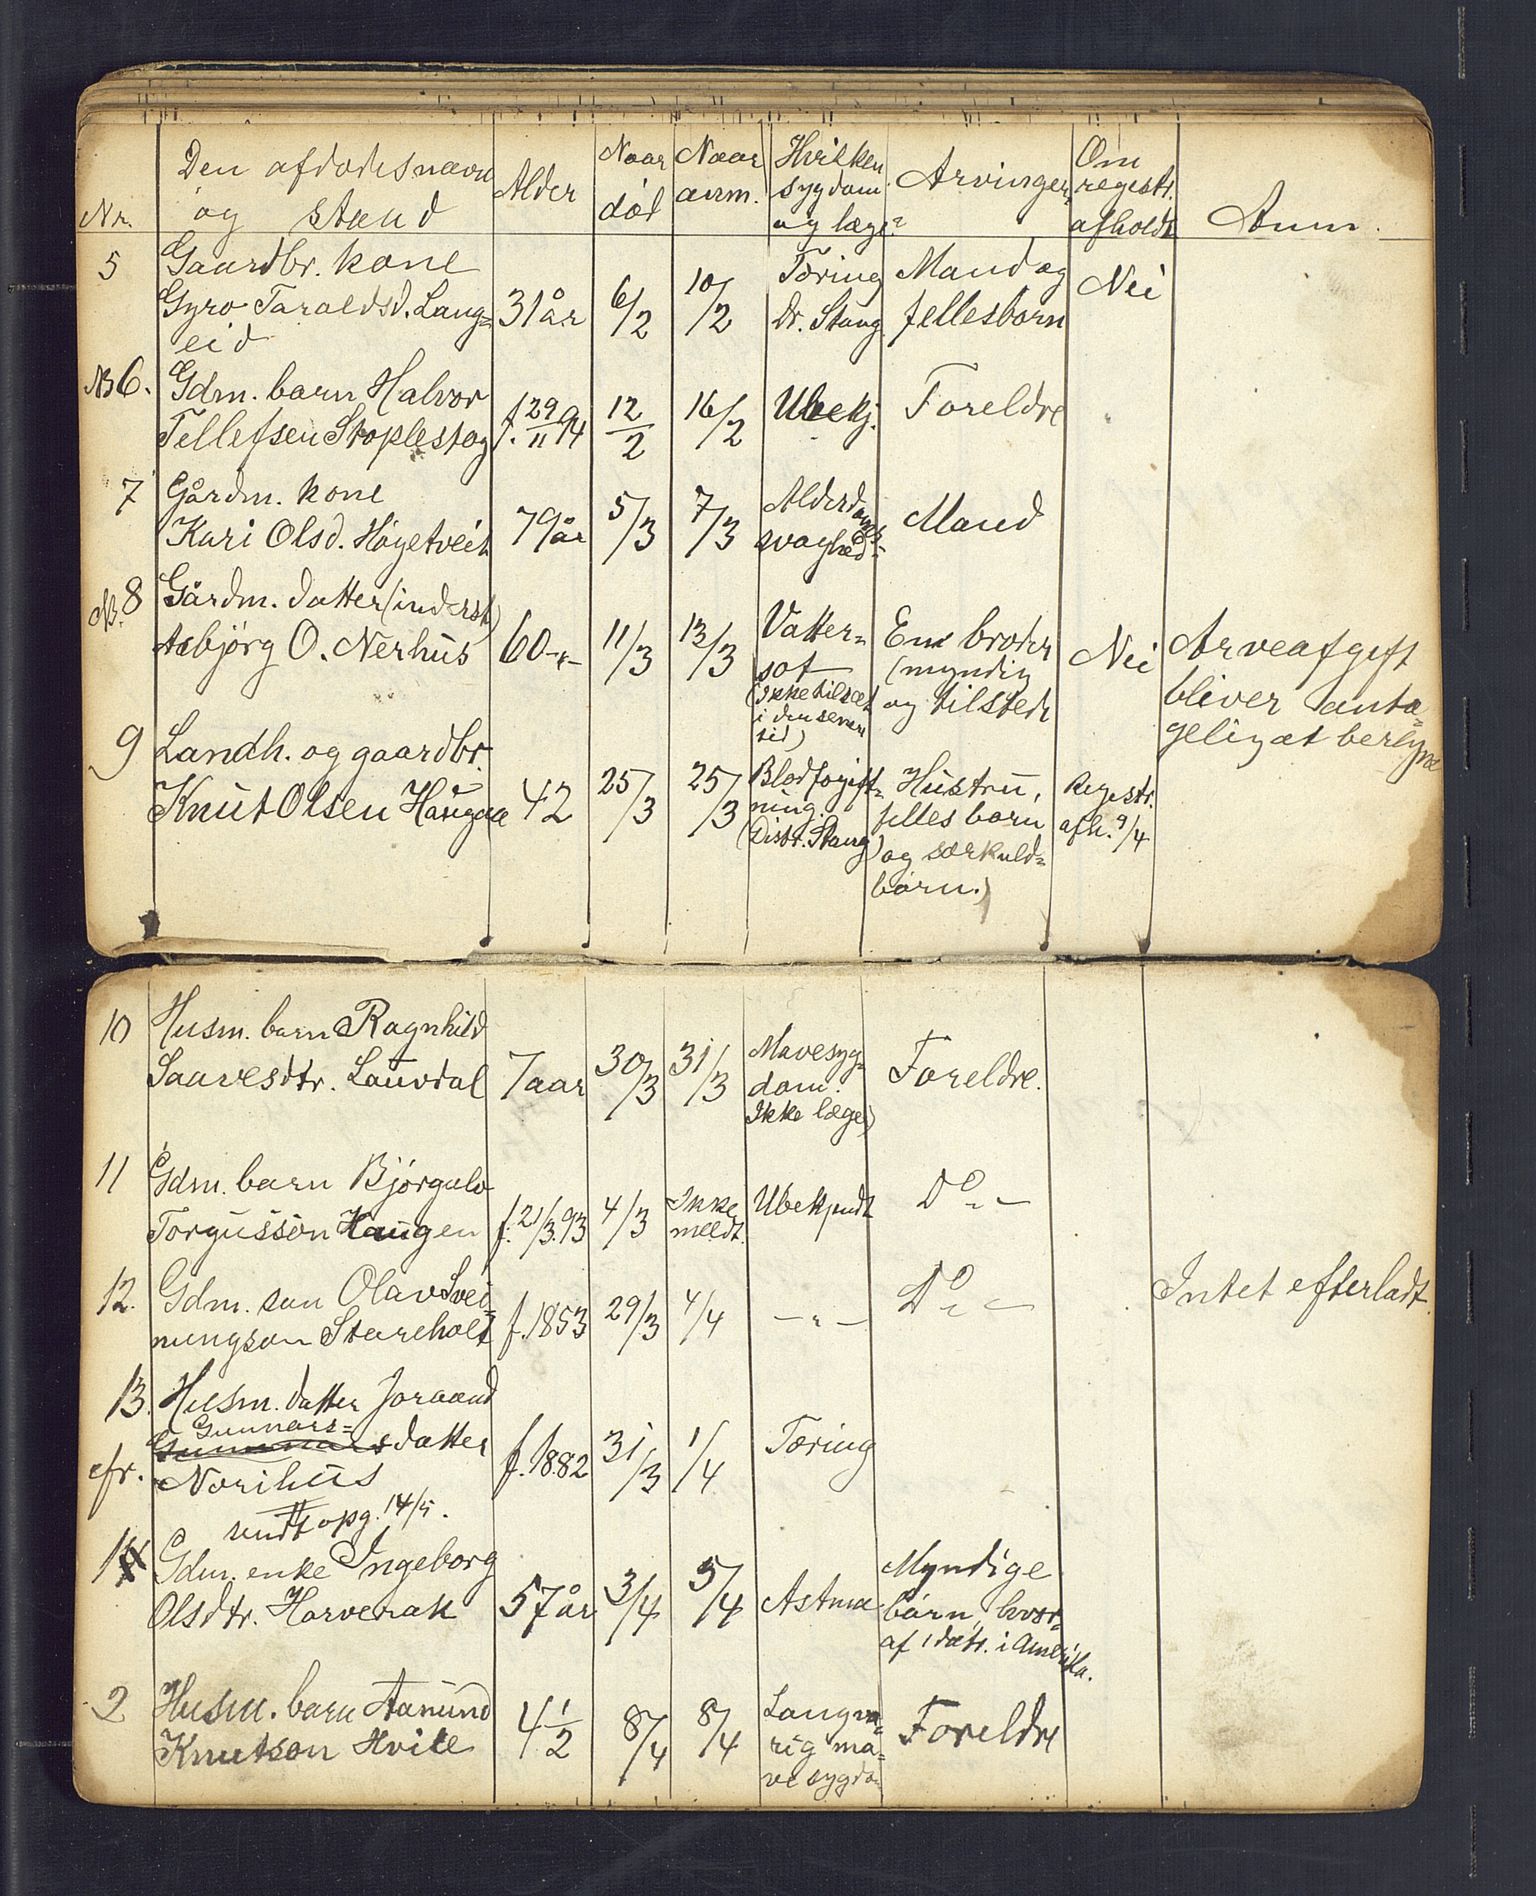 Nr. | Den afdødes navn og stand | Alder | Naar død | Naar anm. | Hvilken sygdom og læge? | Arvinger | Om registr. afholdt | Anm.
5 | Gaardbr. kone Gyro Taraldsd. Lang=eid | 31 år | 6/2 | 10/2 | Tæring Dr. Stang | Mand og fellesbørn | Nei
NB 6. | Gdm. barn Halvor Tellefsen Stoplestog | f. 29/11 94 | 12/2 | 16/2 | Ubekj. | Foreldre
7 | Gårdm. kone Kari Olsd. Høgetveit | 79 år | 5/3 | 7/3 | Alderdoms=svaghed | Mand
NB. 8 | Gårdm. datter (inderst) Asbjørg O. Nerhus | 60 -"- | 11/3 | 13/3 | Vatter=sot (Ikke tilseet i den senere tid) | En broder (myndig og tilstede | Nei | Arveafgift bliver anta=gelig at beregne
9 | Landh. og gaardbr. Knut Olsen Haugaa | 42 | 25/3 | 25/3 | Blodforgift=ning. (Distr. Stang) | Hustru, felles børn og særkuld=børn.) | Registr. afh. 9/4
10 | Husm. barn Ragnhild Saavesdtr. Lauvdal | 7 aar | 30/3 | 31/3 | Mavesyg=dom. Ikke læge) | Foreldre.
11 | Gdm. barn Bjørgulv Torgusson Haugen | f. 21/3. 93 | 4/3 | Ikke meldt. | Ubekjendt | Do -"-
12. | Gdm. søn Olav Svei=nungson Stareholt | f. 1853 | 29/3 | 4/4 | -"- | Do -"- | Intet efterladt.
13. efr. | Husm. datter Joraand Gunnars=datter Norihus | f. 1882 | 31/3 | 1/4 | Tæring
sendt opg. 14/5.
14 | Gdm. enke Ingeborg Olsdtr. Harverak | 57 år | 3/4 | 5/4 | Astma | Myndige børn, hvor=af 1 datr. i Amerika.
2 | Husm. barn Aanund Knutson Hvile | 4 1/2 | 8/4 | 8/4 | Langva=rig ma=vesygdom | Foreldre